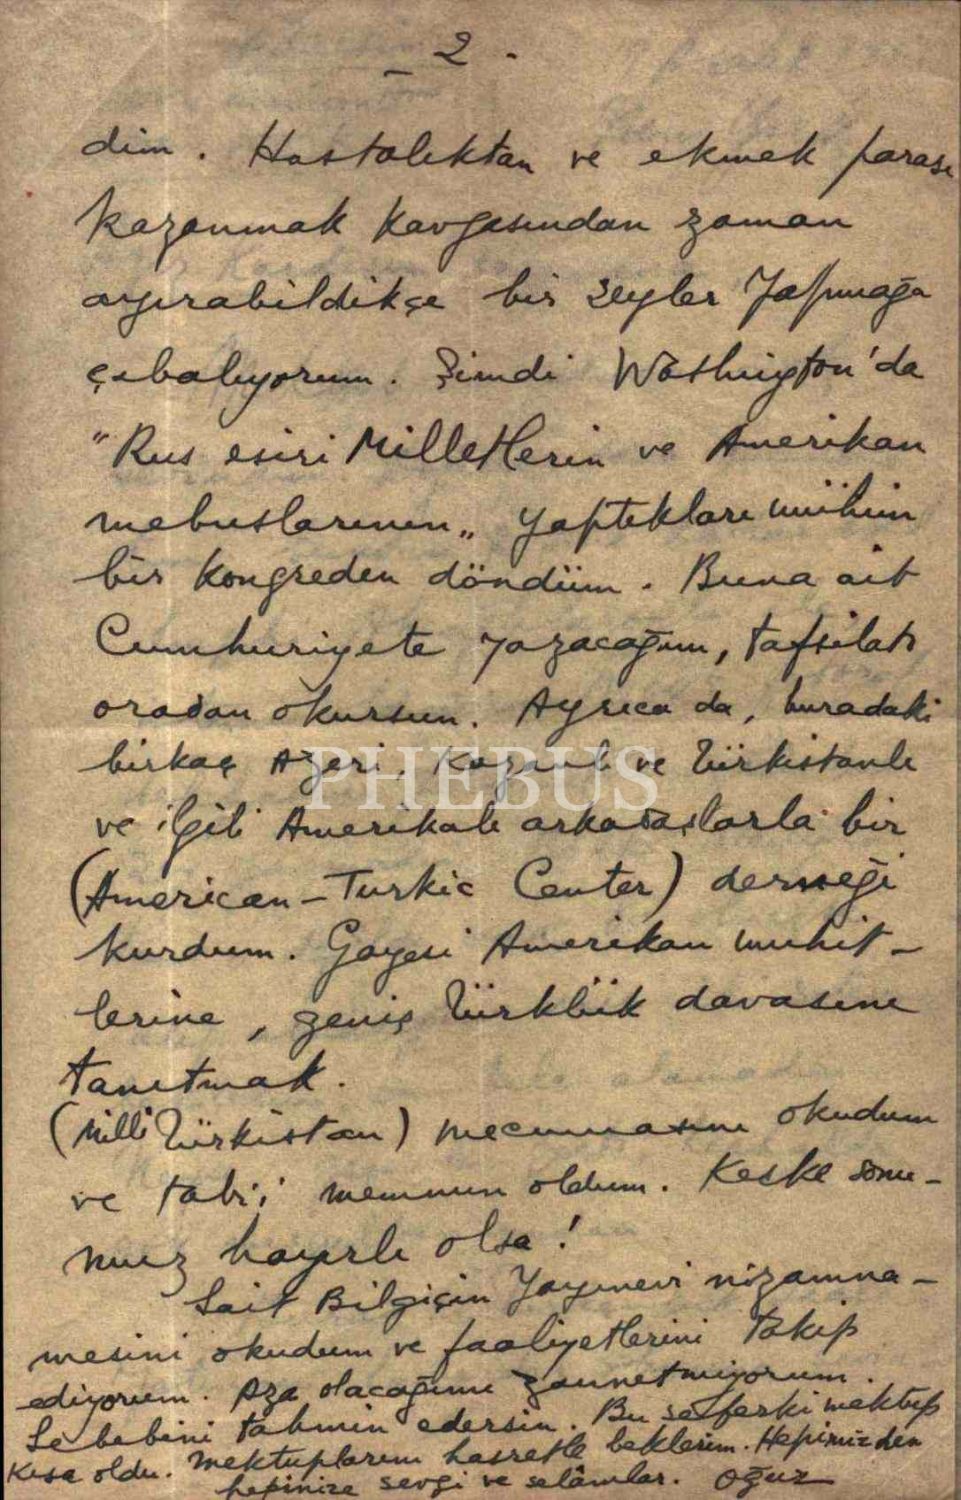 - 2 -
dim. Hastalıktan ve ekmek parası
kazanmak kavgasından zaman
ayırabildikçe bir şeyler yapmağa
çabalıyorum. Şimdi Washington'da
"Rus esiri Milletlerin ve Amerikan
mebuslarının" yaptıkları mühim
bir kongreden döndüm. Buna ait
Cumhuriyete yazacağım, tafsilatı
oradan okursun. Ayrıca da, buradaki
birkaç Azeri, Kazanlı ve Türkistanlı
PHEBUS
ve ilgili Amerikalı arkadaşlarla bir
(American-Turkic Center) derneği
kurdum. Gayesi Amerikan muhit-
lerine, geniş Türklük davasını
tanıtmak.
(Milli Türkistan) mecmuasını okudum
ve tabii memnun oldum. Keşke sonu-
muz hayırlı olsa!
Sait Bilgiçin Yayınevi nizamna-
mesini okudum ve faaliyetlerini takip
ediyorum. Aza olacağımı zannetmiyorum.
Sebebini tahmin edersin. Bu seferki mektup
kısa oldu. Mektuplarını hasretle beklerim. Hepimizden
hepinize sevgi ve selâmlar. Oğuz